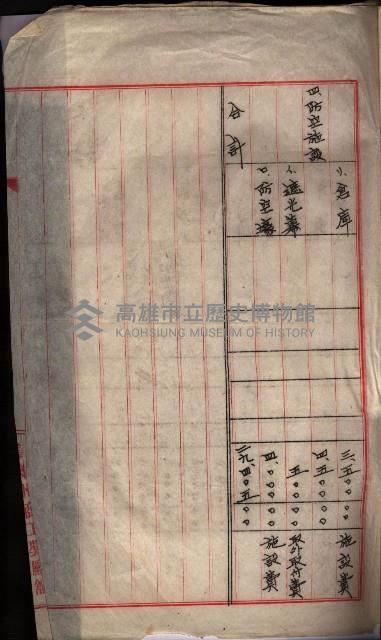 ハ、倉庫 三、五〇〇〇 施設費
四、防空施設 四、五〇〇〇
イ、遮光幕 五〇〇〇 取外取付費
ロ、防空壕 四、〇〇〇〇 施設費
合計 二九、四〇五〇
高雄市立歷史博物館
KAOHSIUNG MUSEUM OF HISTORY